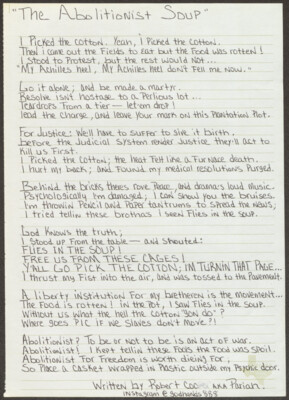 "The Abolitionist Soup"
I Picked the cotton. Yeah, I Picked the Cotton.
Then I came out the Fields to eat but the Food was rotten!
I stood to Protest, but the rest would Not...
"My Achilles Heel, My Achilles Heel don't Fell me Now."
Go it alone; and be made a martyr.
Resolve isn't hostage to a Perilous lot...
Teardrops From a tier — let'em drop!
lead the Charge, and leave your mark on this Plantation Plot.
For Justice: We'll have to suffer to give it birth.
before the Judicial System render Justice they'll act to
kill us First.
I Picked the cotton; the heat Felt like a Furnace death.
I hurt my back; and Found my medical resolutions Purged.
Behind the bricks, theres rove Peace, and drama's loud music.
Psychologically I'm damaged; I can show you the bruises.
I'm throwin Pencil and Paper tantrums to spread the news;
I tried tellin these brothas I seen Flies in the Soup.
God Knows the truth;
I stood up From the table — and shouted:
FLIES IN THE SOUP!
FREE US FROM THESE CAGES!
Y'ALL GO PICK THE COTTON, I'M TURNIN THAT PAGE...
I thrust my Fist into the air, and was tossed to the Pavement.
A liberty institution For my bretheron is the movement...
The Food is rotten! In the Pot, I saw Flies in the soup.
Without us what the hell the cotton 'gon do?
Where goes PIC if we slaves don't move?!
Abolitionist? To be or not to be is an act of war.
Abolitionist! I kept tellin these Fools the Food was spoil.
Abolitionist For Freedom is worth dieing For;
So Place a Casket wrapped in Plastic outside em Psychic door.
Written by Robert AKA Pariah.
Instagram @